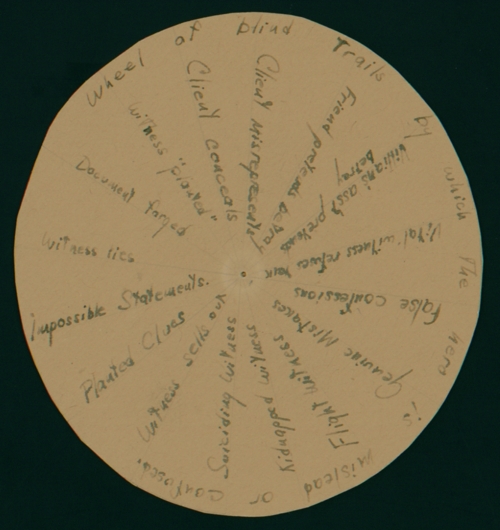 Wheel of blind Trails by which The hero is mislead or confused.
Client Misrepresents
Friend pretends betray
Villians ass't pretends betray
Vital witness refuses talk
False confessions
Genuine Mistakes
Flight witness
Kidnapped witness
Suiciding Witness
Witness sells out
Planted Clues
Impossible Statements.
Witness lies
Document forged
Witness "planted"
Client conceals